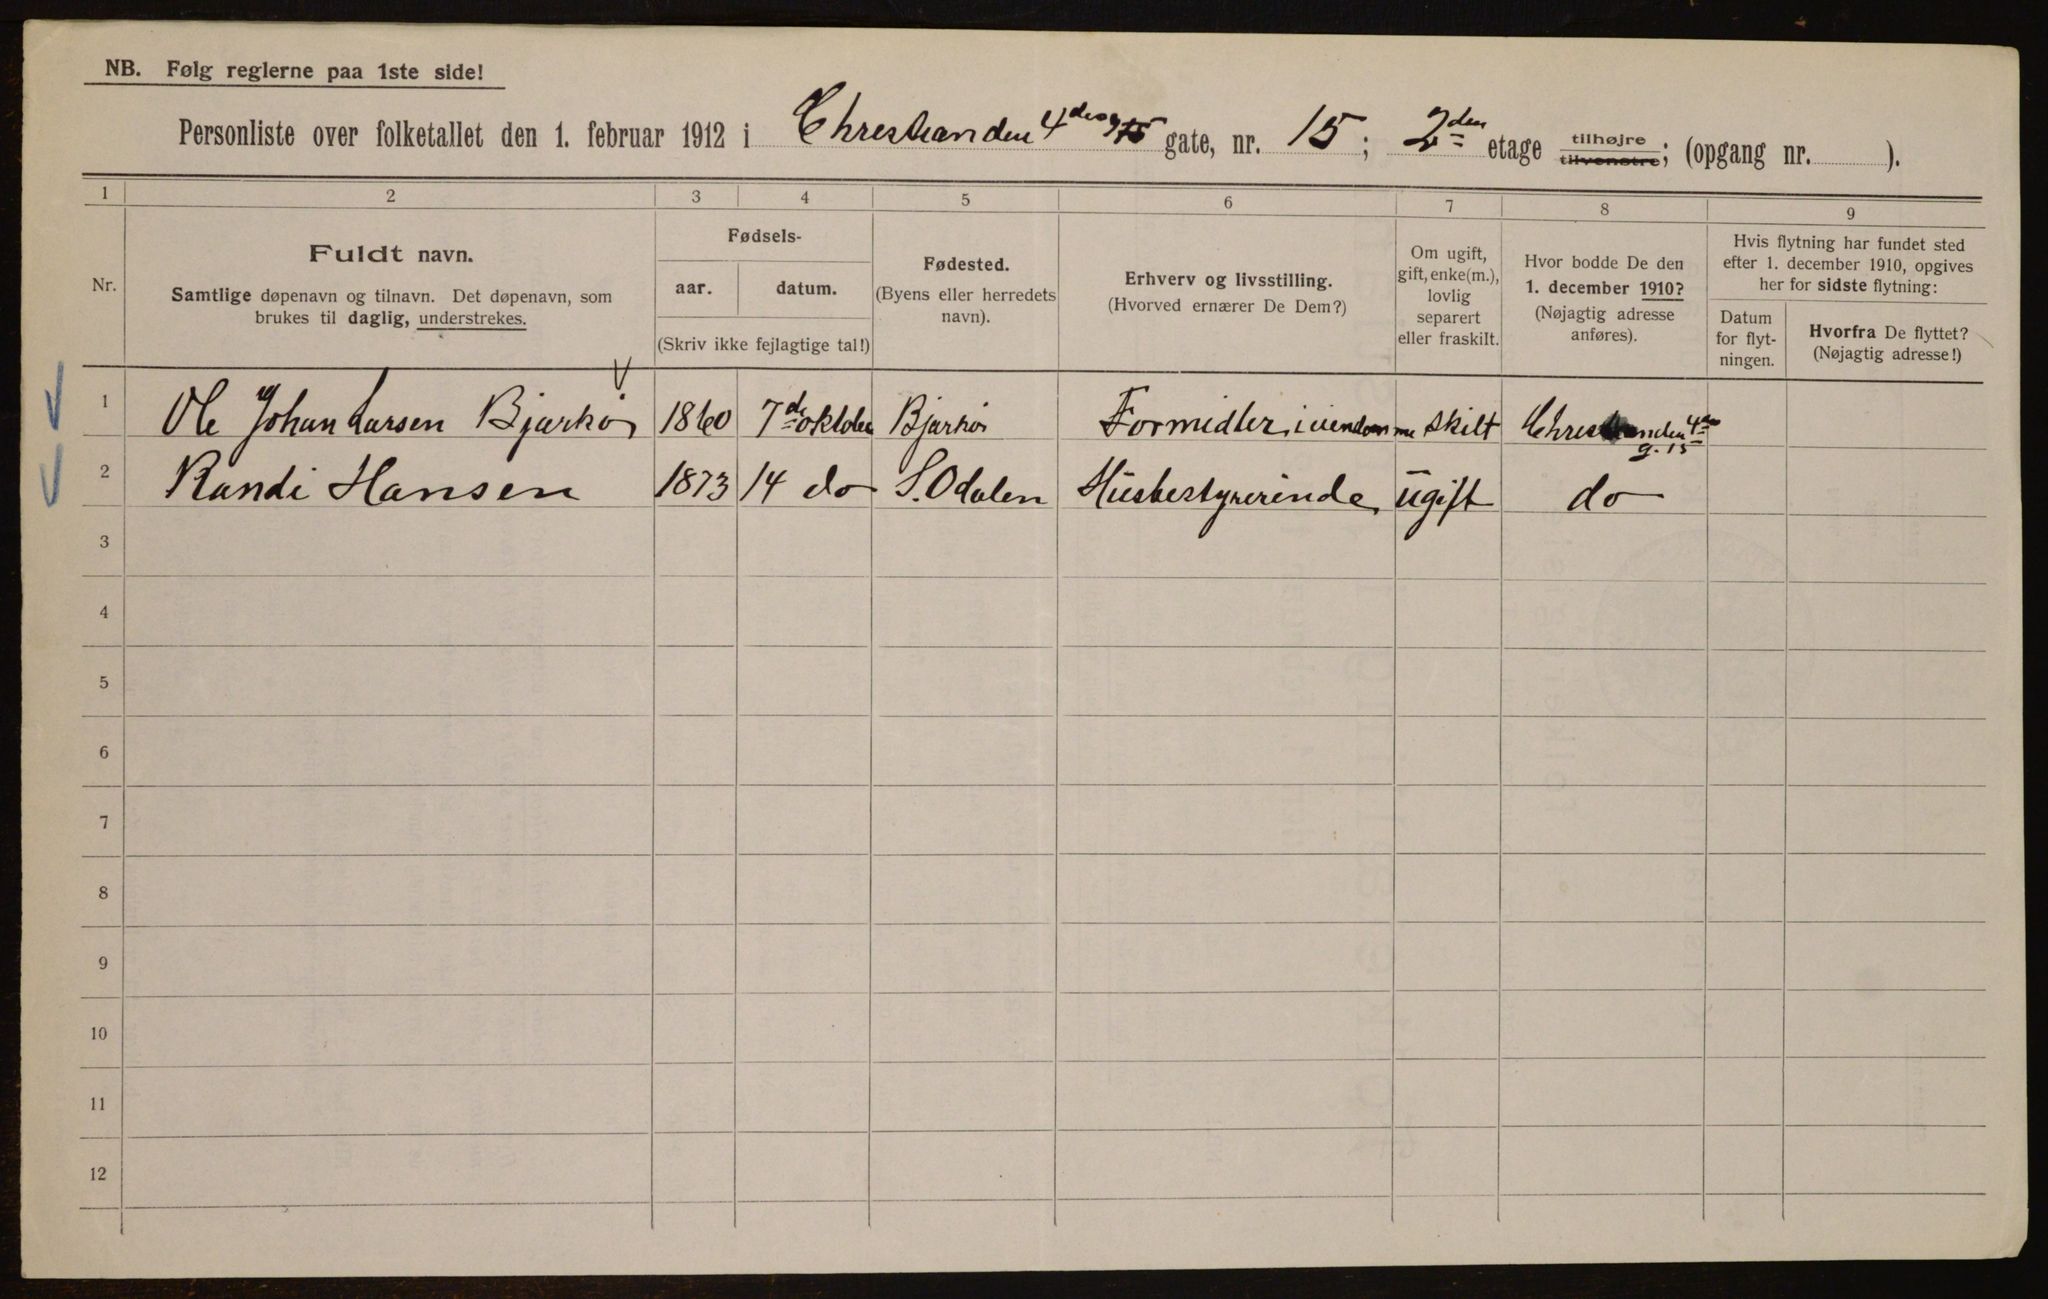 NB. Følg reglerne paa 1ste side!
Personliste over folketallet den 1. februar 1912 i Christian den 4des gate, nr. 15; 2den etage tilhøjre tilvenstre; (opgang nr. ).
1 2 3 4 5 6 7 8 9
Nr.
Fuldt navn.
Samtlige døpenavn og tilnavn. Det døpenavn, som
brukes til daglig, understrekes.
Fødsels-
aar. datum.
(Skriv ikke fejlagtige tal!)
Fødested.
(Byens eller herredets
navn).
Erhverv og livsstilling.
(Hvorved ernærer De Dem?)
Om ugift,
gift, enke(m.),
lovlig
separert
eller fraskilt.
Hvor bodde De den
1. december 1910?
(Nøjagtig adresse
anføres).
Hvis flytning har fundet sted
efter 1. december 1910, opgives
her for sidste flytning:
Datum
for flyt-
ningen.
Hvorfra De flyttet?
(Nøjagtig adresse!)
1 Ole Johan Larsen Bjarkø 1860 7de oktober Bjarkø Formidler i eiendomme skilt Christian den 4des
g. 15
2 Randi Hansen 1873 14 do S. Odalen Husbestyrerinde ugift do
3
4
5
6
7
8
9
10
11
12